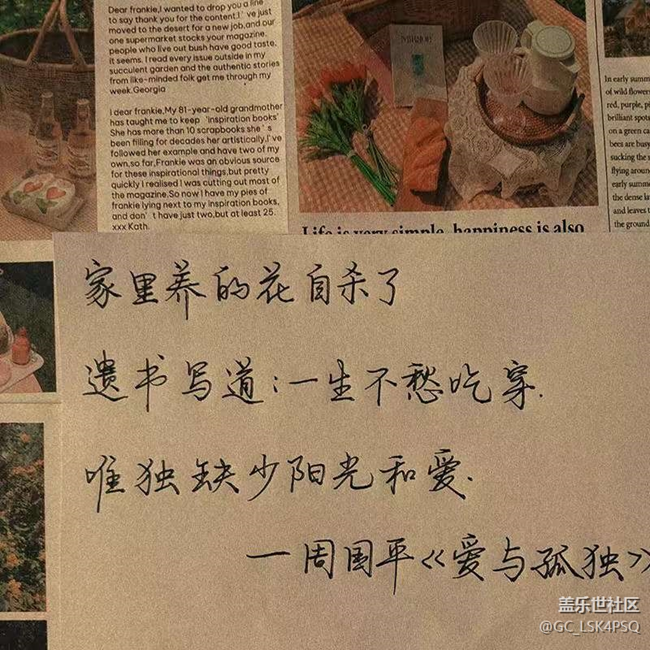 Dear frankie,I wanted to drop you a line
to say thank you for the content.I've just
moved to the desert for a new job,and our
one supermarket stocks your magazine.
people who live out bush have good taste,
it seems. I read every issue outside in my
succulent garden and the authentic stories
from like-minded folk get me through my
week.Georgia
I dear frankie,My 81-year-old grandmother
has taught me to keep 'inspiration books'
She has more than 10 scrapbooks she's
been filling for decades her artistically,I've
followed her example and have two of my
own,so far,Frankie was an obvious source
for these inspirational things,but pretty
quickly I realised I was cutting most of
the magazine.So now I have my pies of
frankie lying next to my inspiration books,
and don't have just two,but at least 25.
xxx Kath.
Life is very simple, happiness is also
In early summ
of wild flowers
red, purple, pi
brilliant spots
on a green ca
bees are busy
sucking the s
flying aroun
early summe
the dense la
and leaves t
the ground
家里养的花自杀了
遗书写道:一生不愁吃穿.
唯独缺少阳光和爱.
—周国平《爱与孤独》
盖乐世社区
@GC_LSK4PSQ